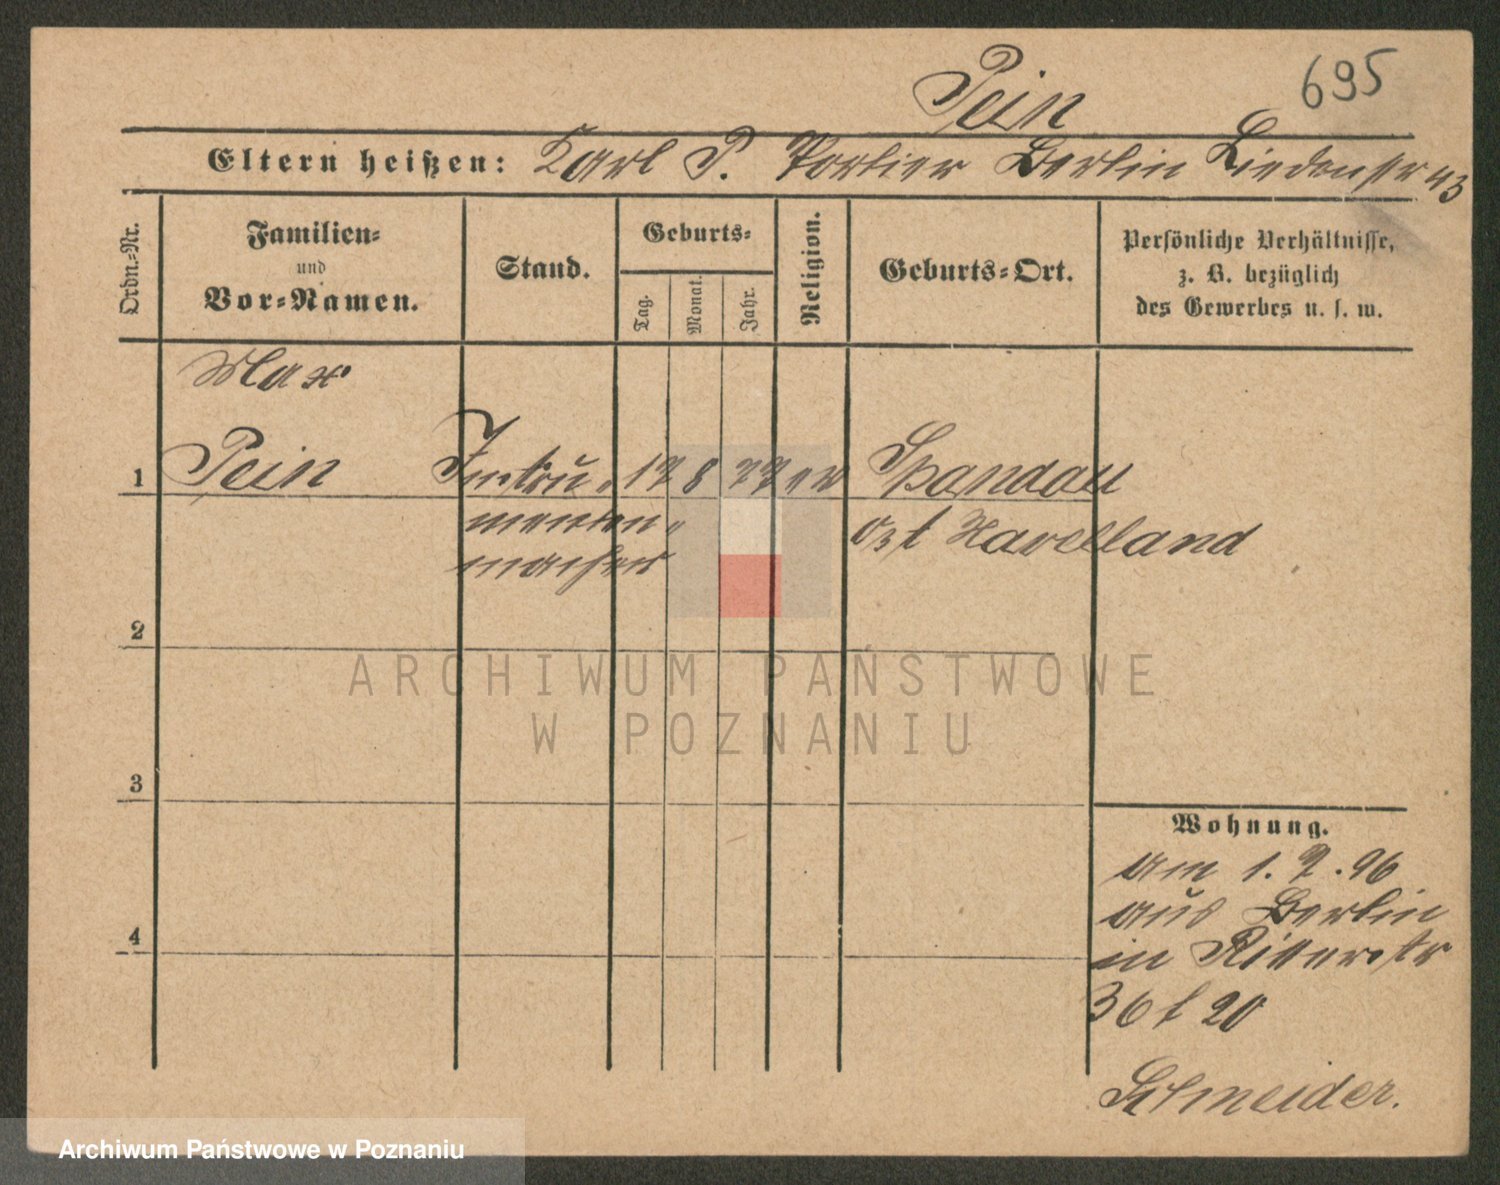 Pein
695
Eltern heißen: Karl P. Portier Berlin Lindenstr 43
Ordn.-Nr.
Familien-
und
Vor-Namen.
Stand.
Geburts-
Tag.
Monat.
Jahr.
Religion.
Geburts-Ort.
Persönliche Verhältnisse,
z. B. bezüglich
des Gewerbes u. s. w.
Max
1 Pein Instru- 17 8 77 ev Spandau
menten-
macher
Ost Havelland
2
3
4
Wohnung.
am 1. 7. 96
aus Berlin
in Ritterstr
36 b 20
Schneider.
ARCHIWUM PAŃSTWOWE
W POZNANIU
Archiwum Państwowe w Poznaniu